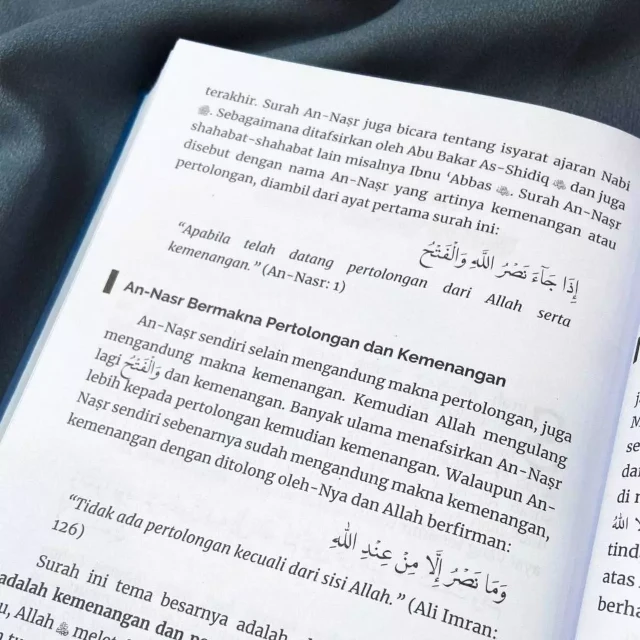 terakhir. Surah An-Naṣr juga bicara tentang isyarat ajaran Nabi
ﷺ. Sebagaimana ditafsirkan oleh Abu Bakar As-Shidiq dan juga
shahabat-shahabat lain misalnya Ibnu ‘Abbas. Surah An-Naṣr
disebut dengan nama An-Naṣr yang artinya kemenangan atau
pertolongan, diambil dari ayat pertama surah ini:
إِذَا جَآءَ نَصْرُ اللَّهِ وَالْفَتْحُ
“Apabila telah datang pertolongan dari Allah serta
kemenangan.” (An-Nasr: 1)
An-Nasr Bermakna Pertolongan dan Kemenangan
An-Naṣr sendiri selain mengandung makna pertolongan, juga
mengandung makna kemenangan. Kemudian Allah mengulang
lagi وَالْفَتْحُ dan kemenangan. Banyak ulama menafsirkan An-Naṣr
lebih kepada pertolongan kemudian kemenangan. Walaupun An-
Naṣr sendiri sebenarnya sudah mengandung makna kemenangan,
kemenangan dengan ditolong oleh-Nya dan Allah berfirman:
وَمَا نَصْرُ إِلَّا مِنْ عِنْدِ اللَّهِ
“Tidak ada pertolongan kecuali dari sisi Allah.” (Ali Imran:
126)
Surah ini tema besarnya adalah
adalah kemenangan dan
Allah
tind
atas
berha